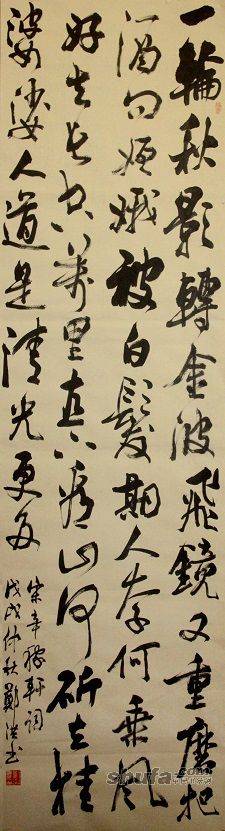 一輪秋影轉金波飛鏡又重磨把
酒問姮娥被白髮欺人奈何乘風
好去長空萬里直下看山河斫去桂
婆娑人道是清光更多
宋辛稼軒詞
戊戌仲秋鄭洪书
shufa.com